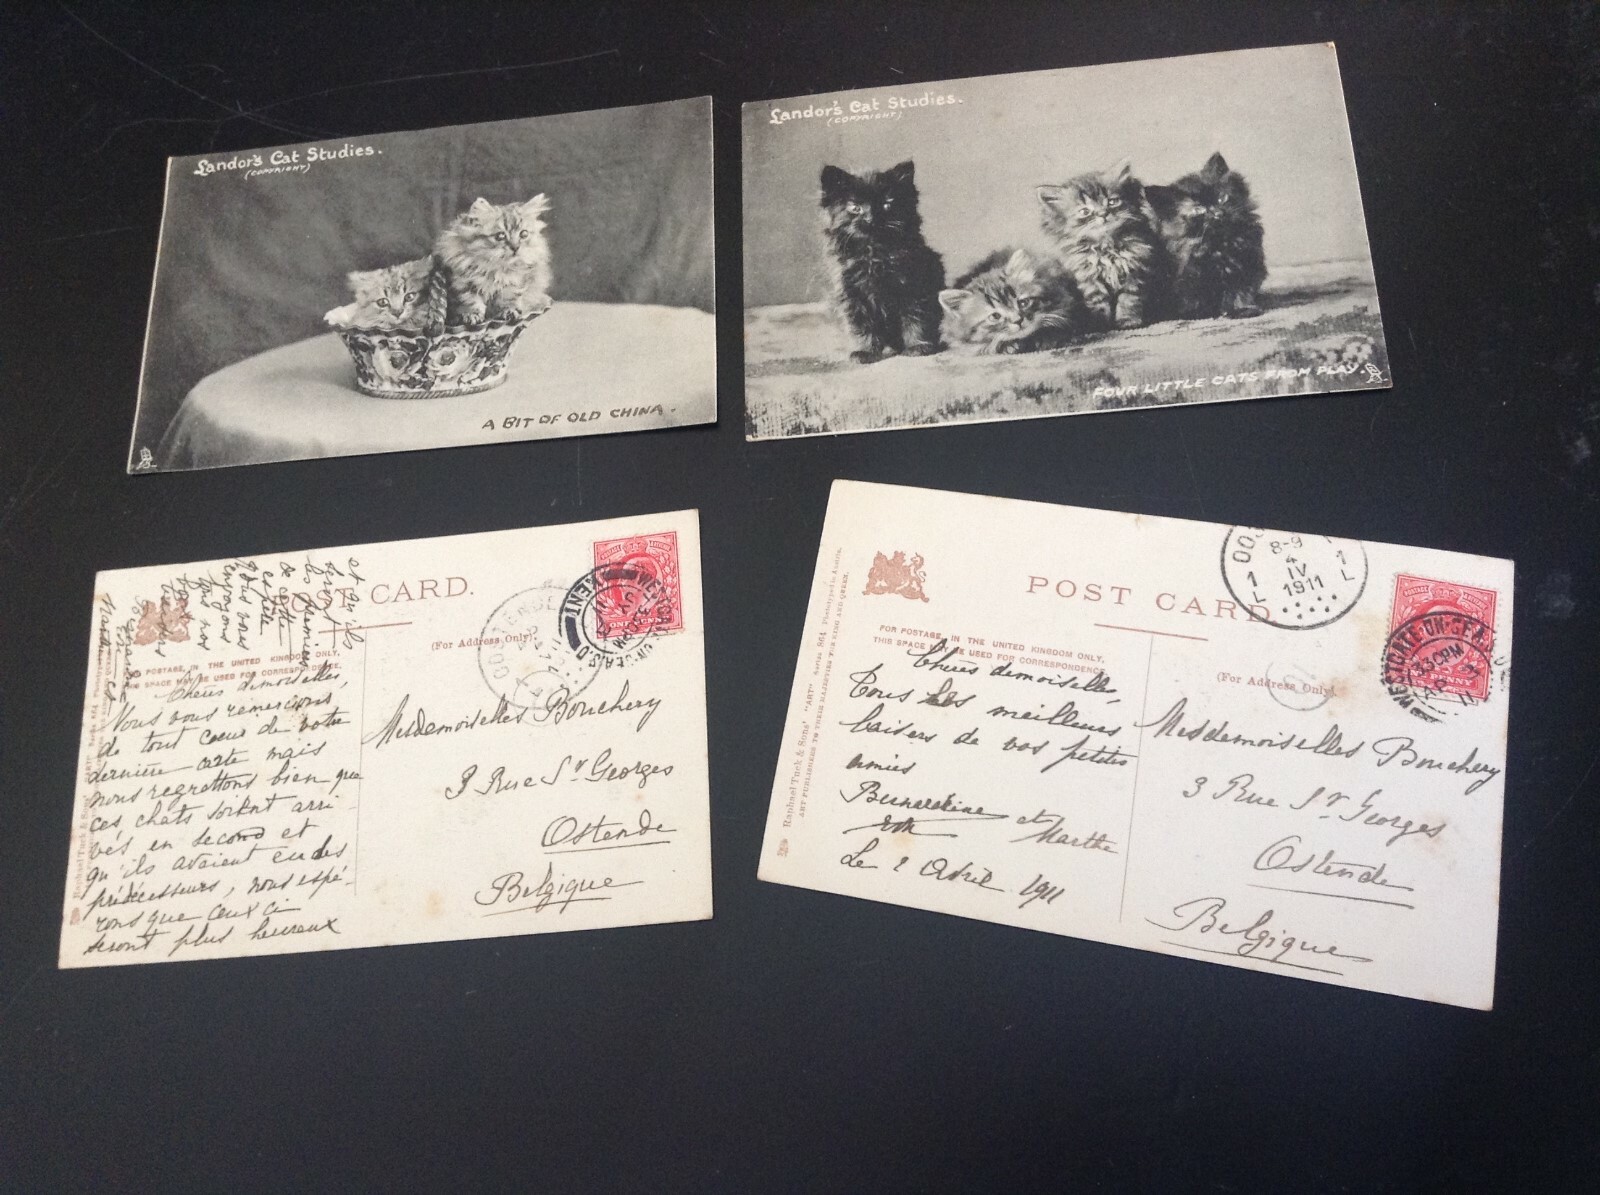 Landor's Cat Studies.
(COPYRIGHT)
A BIT OF OLD CHINA.
Landor's Cat Studies.
(COPYRIGHT)
FOUR LITTLE CATS FROM PLAY.
CARD.
(For Address Only)
FOR POSTAGE, IN THE UNITED KINGDOM ONLY,
THIS SPACE MAY BE USED FOR CORRESPONDENCE
Raphael Tuck & Sons'
Chères demoiselles,
Nous vous remercions
de tout coeur de votre
dernière carte mais
nous regrettons bien que
ces chats soient arri-
vés en second et
qu'ils avaient eu des
prédécesseurs, nous espé-
rons que ceux ci
seront plus heureux
et qu'ils
seront
les derniers
de cette
espèce
que vous
envoyons
nos
baisers
Mesdemoiselles Bouchery
3 Rue St Georges
Ostende
Belgique
OOSTENDE
WESTGATE-ON-SEA S.O
KENT
ONE PENNY
POST CARD.
FOR POSTAGE IN THE UNITED KINGDOM ONLY,
THIS SPACE MAY BE USED FOR CORRESPONDENCE
(For Address Only)
Raphael Tuck & Sons' "ART" Series 864 Phototyped in Austria.
ART PUBLISHERS TO THEIR MAJESTIES THE KING AND QUEEN.
Chères demoiselles,
Tous les meilleurs
baisers de vos petites
amies
Bernardine et
Marthe
Le 2 Avril 1911
Mesdemoiselles Bouchery
3 Rue St Georges
Ostende
Belgique
8-9
4
IV
1911
1 L
WESTGATE-ON-SEA
PENNY